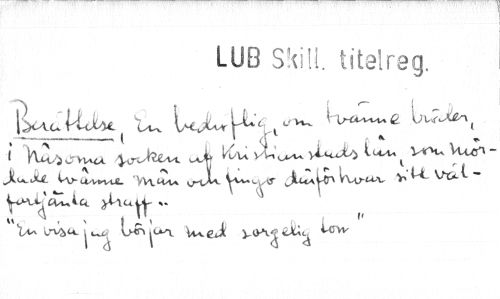 LUB Skill. titelreg.
Berättelse, En bedröflig, om tvänne bröder,
i Näsoma socken af Kristianstads län, som mör-
dade tvänne män och fingo därför hvar sitt väl-
förtjänta straff..
"En visa jag börjar med sorgelig ton"